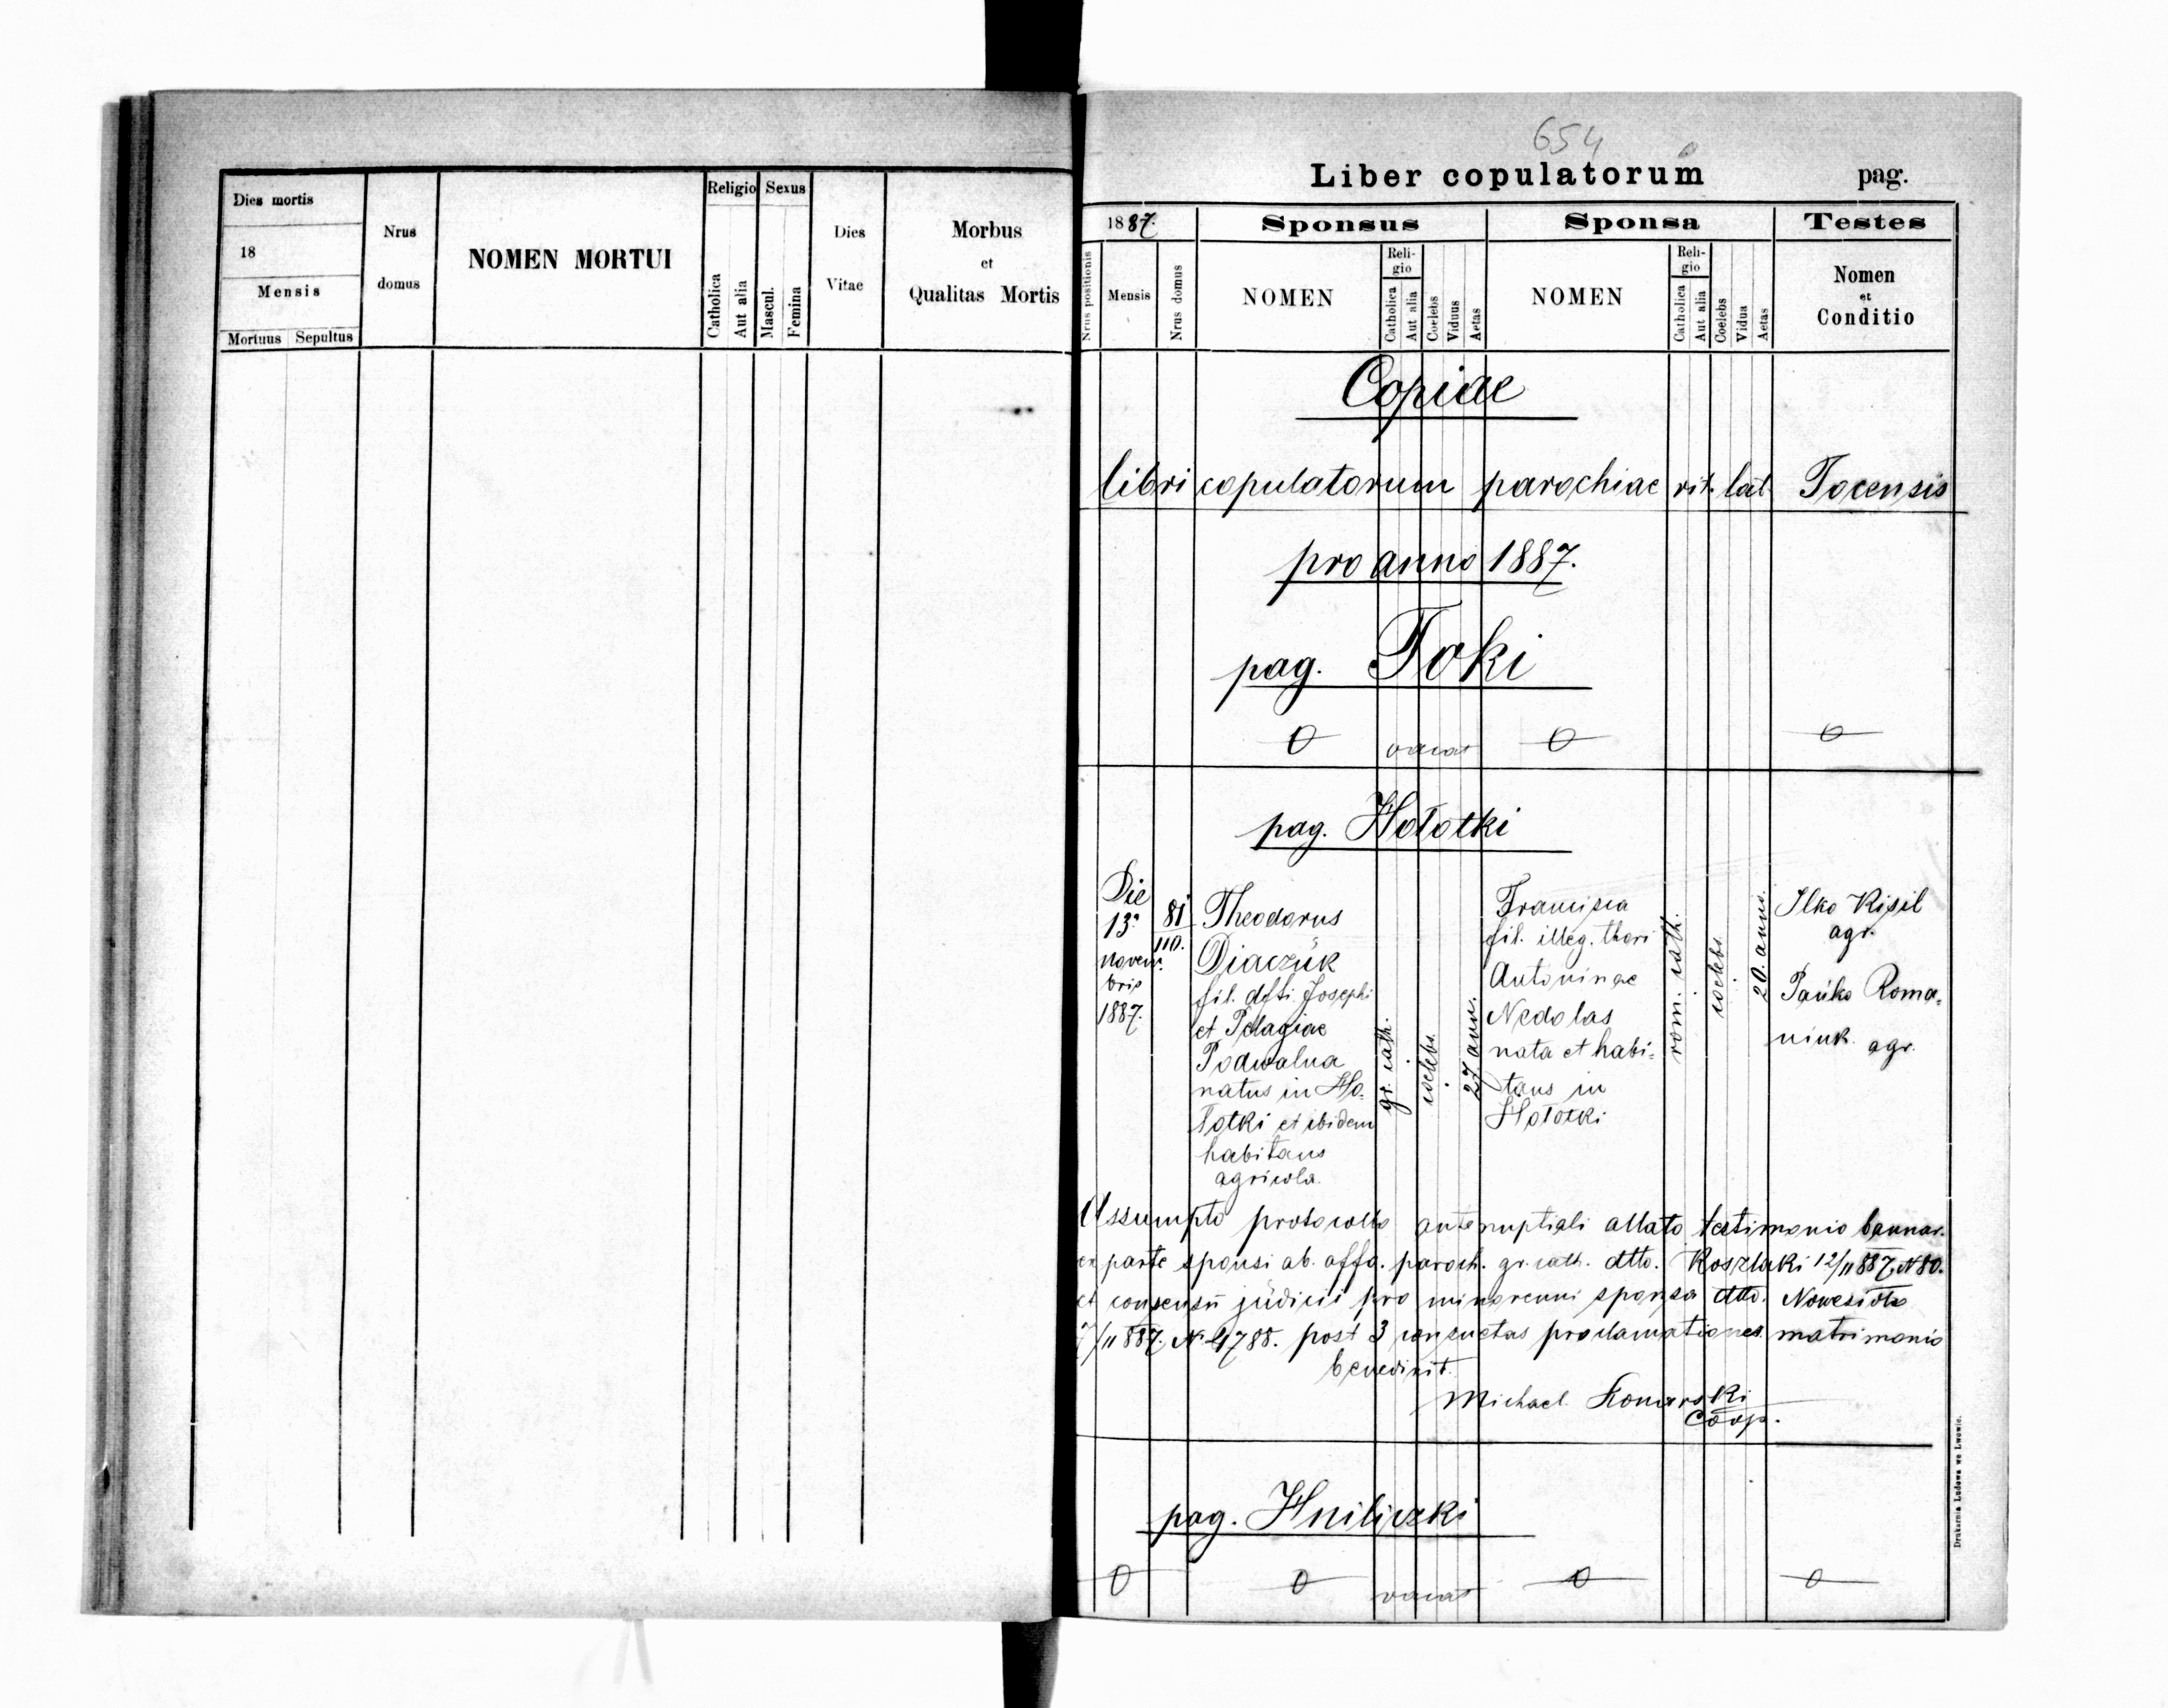 Dies mortis
18
Mensis
Mortuus Sepultus
Nrus
domus
NOMEN MORTUI
Religio
Catholica
Aut alia
Sexus
Mascul.
Femina
Dies
Vitae
Morbus
et
Qualitas Mortis
654
Liber copulatorum pag.
1887.
Sponsus
Sponsa
Testes
Nrus positionis
Mensis
Nrus domus
NOMEN
Reli-
gio
Catholica
Aut alia
Coelebs
Viduus
Aetas
NOMEN
Reli-
gio
Catholica
Aut alia
Coelebs
Vidua
Aetas
Nomen
et
Conditio
Copiae
libri copulatorum parochiae rit. lat. Tocensis
pro anno 1887.
pag. Toki
0 vacat 0 0
pag. Hołotki
Die
13a
Novem-
bris
1887.
81
110.
Theodorus
Diaczuk
fil. dfti. Josephi
et Pelagiae
Podwalna
natus in Ho-
łotki et ibidem
habitans
agricola.
gr. cath.
coelebs.
27 ann.
Francisca
fil. illeg. thori
Antoninae
Nedolas
nata et habi-
tans in
Hołotki
rom. cath.
coelebs.
20 anni.
Ilko Kisil
agr.
Pańko Roma-
niuk. agr.
Assumpto protocollo antenuptiali allato testimonio bannor.
ex parte sponsi ab offo. paroch. gr. cath. dtto. Koszlaki 12/11 887 N 80.
et consensu judicii pro minorenni sponsa dtto. Nowesioło
/11 887. N 4788. post 3 consuetas proclamationes matrimonio
benedixit.
Michael Komarski
Coop.
pag. Hniliczki
0 0 vacat 0 0
Drukarnia Ludowa we Lwowie.